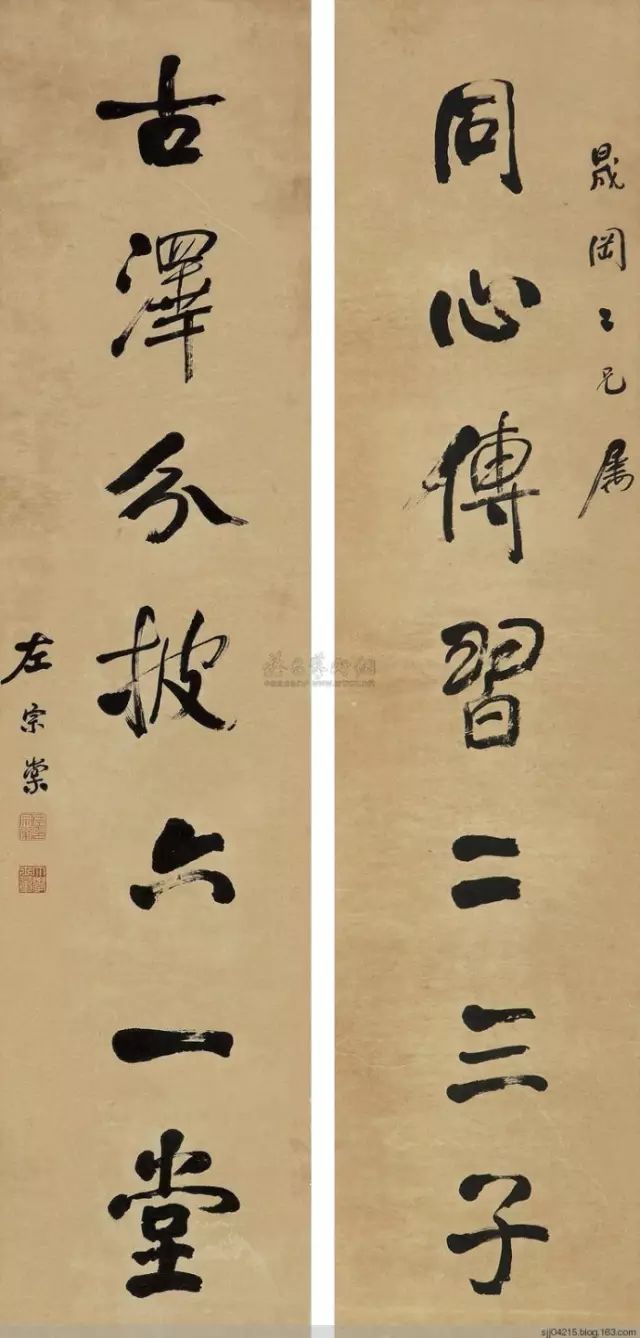 晟岡二兄屬
同心傳習二三子
古澤分披六一堂
左宗棠
sjj04215.blog.163.com